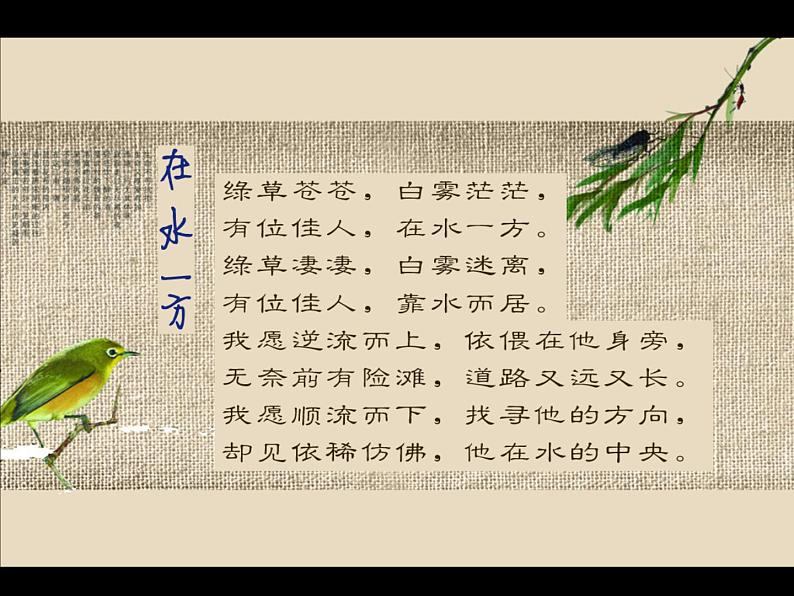 在水一方
绿草苍苍，白雾茫茫，
有位佳人，在水一方。
绿草凄凄，白雾迷离，
有位佳人，靠水而居。
我愿逆流而上，依偎在他身旁，
无奈前有险滩，道路又远又长。
我愿顺流而下，找寻他的方向，
却见依稀仿佛，他在水的中央。